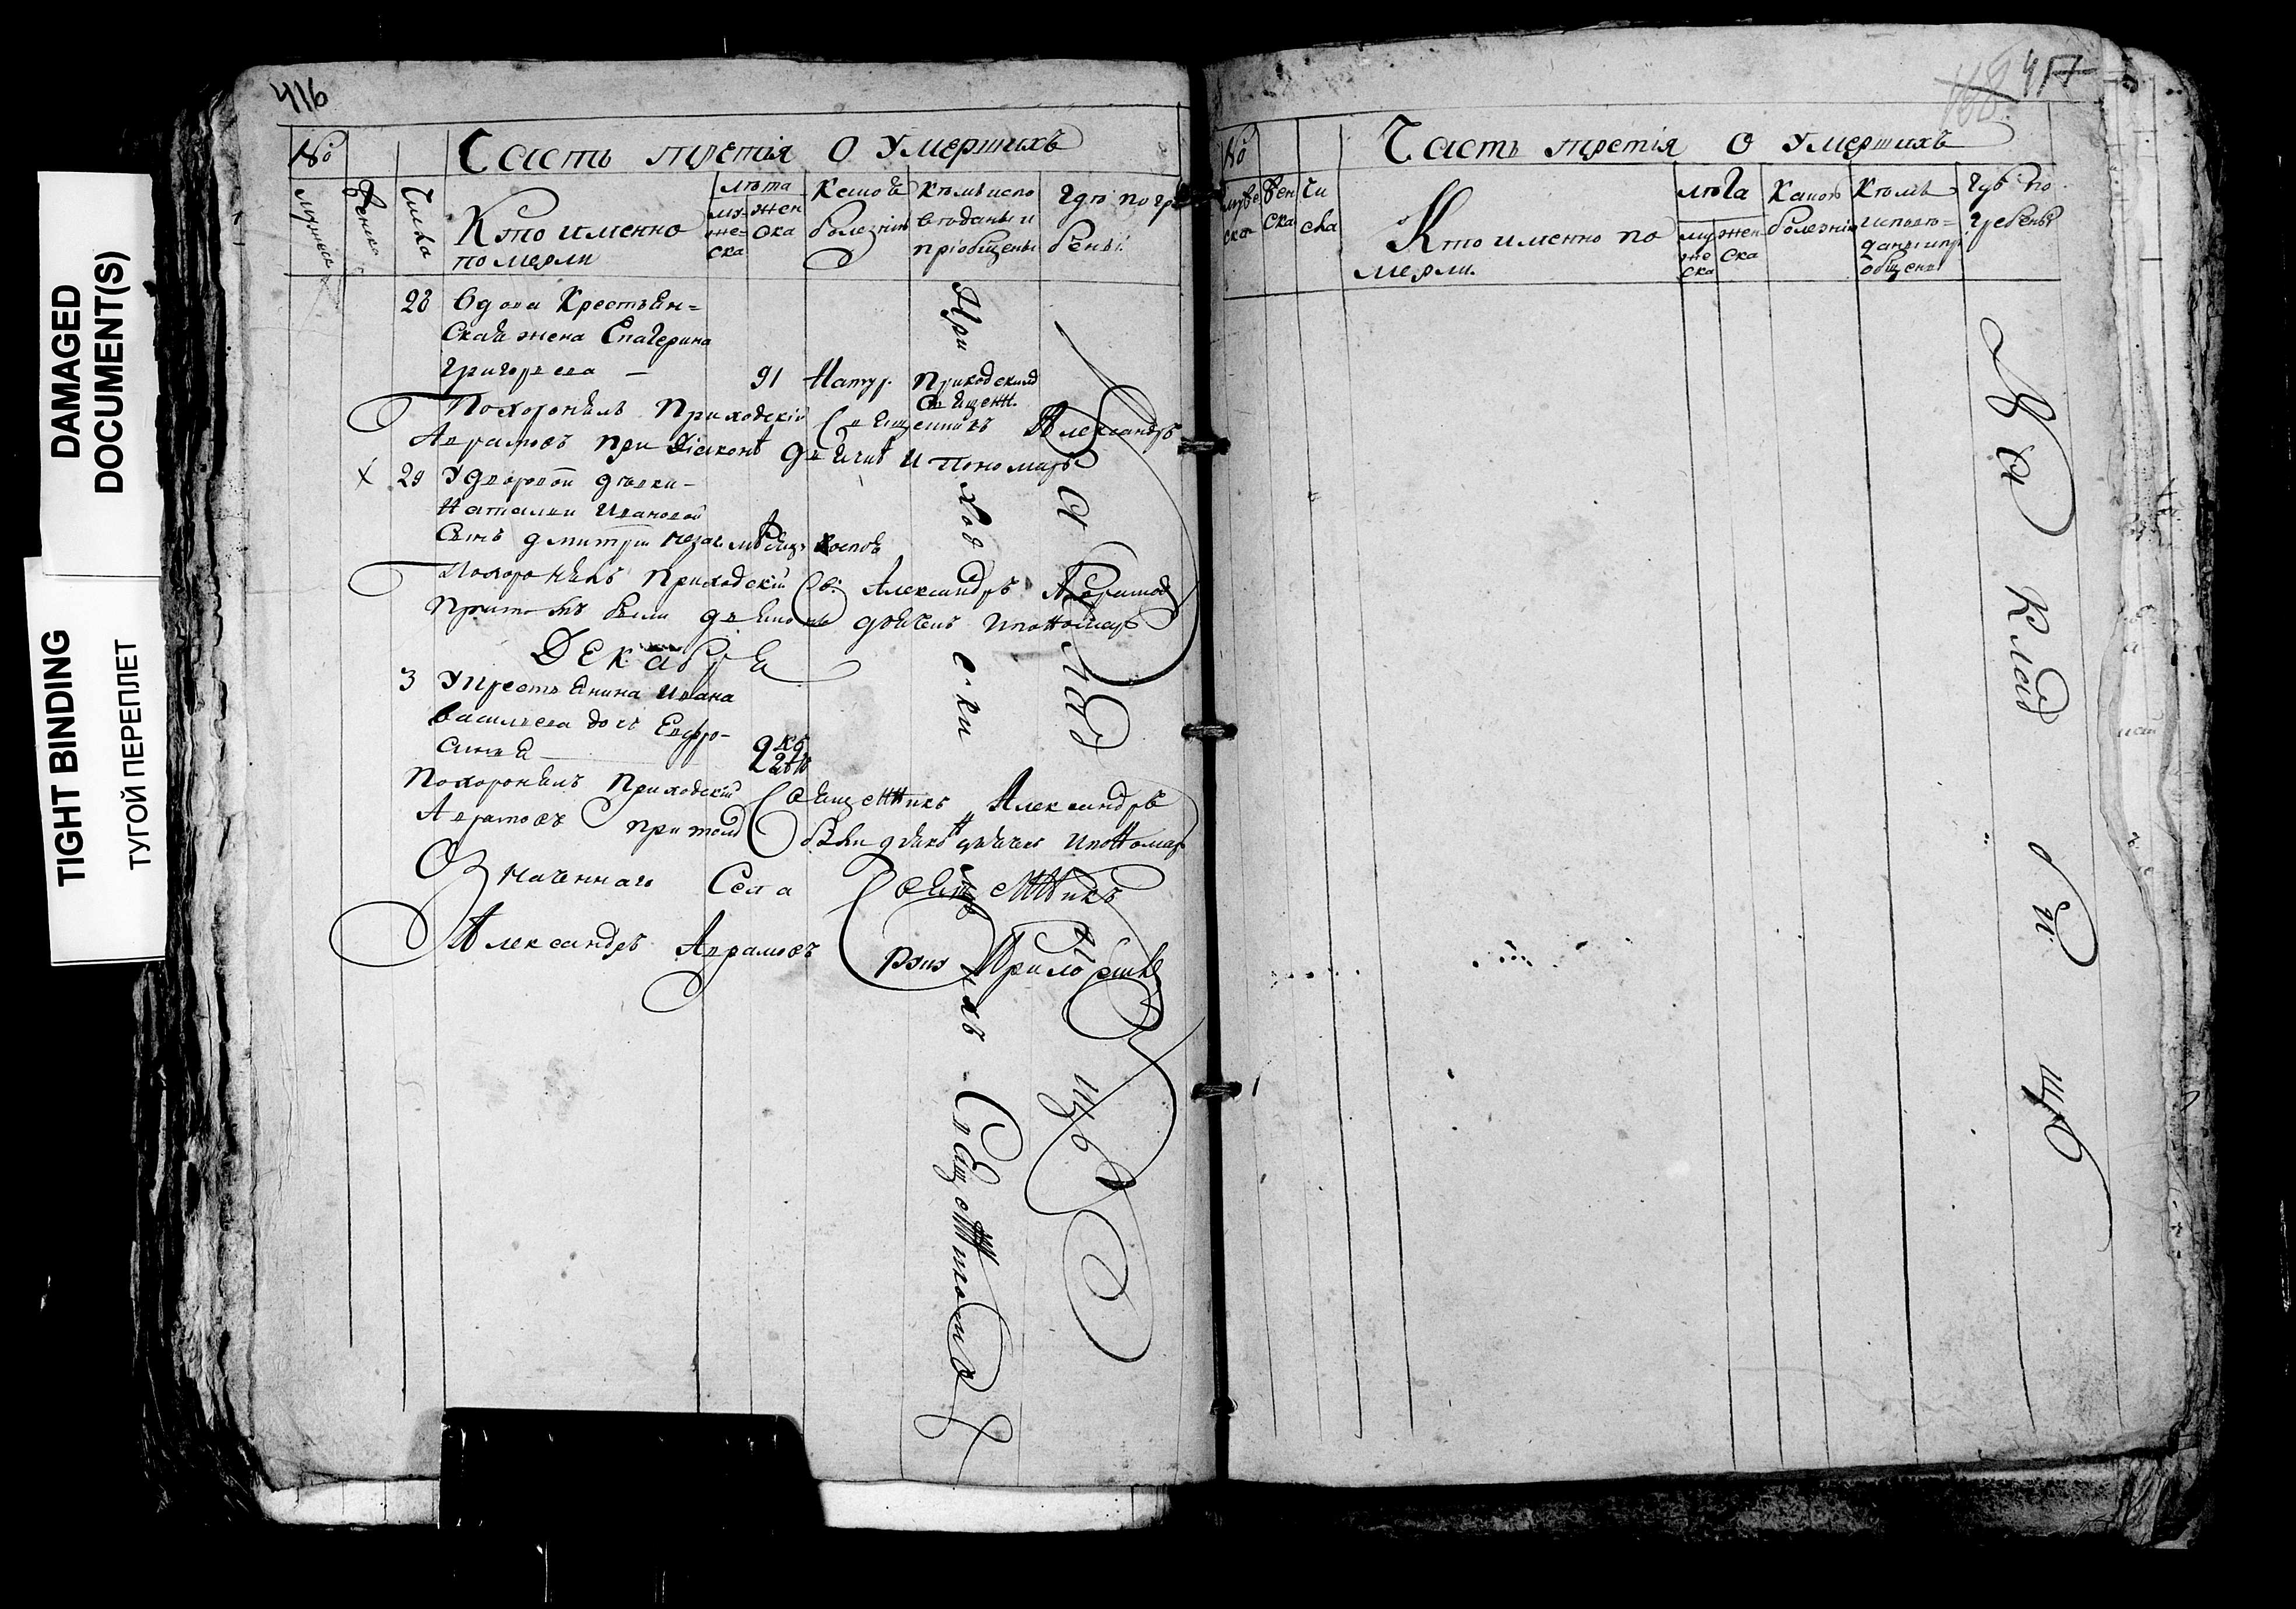 DAMAGED
DOCUMENT(S)
TIGHT BINDING
ТУГОЙ ПЕРЕПЛЕТ
416
№
Часть третія о умершихъ
мужеска
женска
числа
Кто именно
померли
лѣта
му-
же-
ска
жен
ска
Какой
болезнію
Кѣмъ испо
веданы и
пріобщены
Гдѣ погре
бены
28 Вдова Крестьян-
ская жена Екатерина
Григорьева — 91 Натур. Приходскимъ
Священ.
Похоронилъ Приходскій Священникъ Александръ
Аврамовъ при діаконѣ дьячкѣ и Пономарѣ
29 У дворовой девки
Наталии Ивановой
Сынъ дмитрий
Похоронилъ Приходскій Св: Александръ Аврамовъ
Притомъ были дьяконъ дьячекъ и пономарь
Декабря
3 У крестьянина Ивана
васильева дочь Евфро-
синья
Похоронилъ Приходскій Священникъ Александръ
Аврамовъ при томъ были дьяконъ дьячекъ и пономарь
Означеннаго Села Священникъ
Александръ Аврамовъ руку Приложилъ
Приходскимъ Священникомъ
На Кладбищѣ
168 417
№
Часть третія о умершихъ
муже
ска
жен
ска
чи
сла
Кто именно по
мерли.
лѣта
му
же
ска
жен
ска
Какою
болезнію
Кѣмъ
исповѣ-
даны и при
общены
Гдѣ по
гребены
На Кладбищѣ